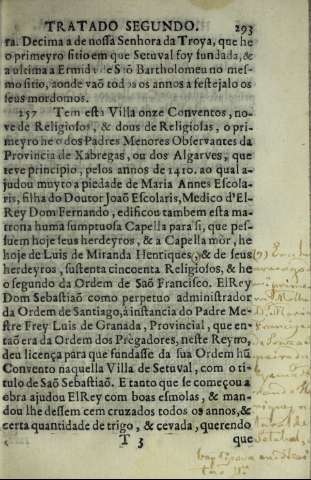 TRATADO SEGUNDO. 293
ra. Decima a de nossa Senhora da Troya, que he
o primeyro sitio em que Setuval foy fundada, &
a ultima a Ermida de Saõ Bartholomeu no mes-
mo sitio, aonde vaõ todos os annos a festejalo os
seus mordomos.
257 Tem esta Villa onze Conventos, no-
ve de Religiosos, & dous de Religiosas, o pri-
meyro he o dos Padres Menores Observantes da
Provincia de Xabregas, ou dos Algarves, que
teve principio, pelos annos de 1410. ao qual a-
judou muyto a piedade de Maria Annes Escola-
ris, filha do Doutor Joaõ Escolaris, Medico d'El-
Rey Dom Fernando, edificou tambem esta ma-
trona huma sumptuosa Capella para si, que pes-
suem hoje seus herdeyros, & a Capella mòr, he
hoje de Luis de Miranda Henriques, & de seus
herdeyros, sustenta cincoenta Religiosos, & he
o segundo da Ordem de Saõ Francisco. ElRey
Dom Sebastiaõ como perpetuo administrador
da Ordem de Santiago, à instancia do Padre Me-
stre Frey Luis de Granada, Provincial, que en-
taõ era da Ordem dos Prègadores, neste Reyno,
deu licença para que fundasse da sua Ordem hũ
Convento naquella Villa de Setuval, com o ti-
tulo de Saõ Sebastiaõ. E tanto que se começou a
obra ajudou ElRey com boas esmolas, & man-
dou lhe dessem cem cruzados todos os annos, &
certa quantidade de trigo, & cevada, querendo
T 3 que